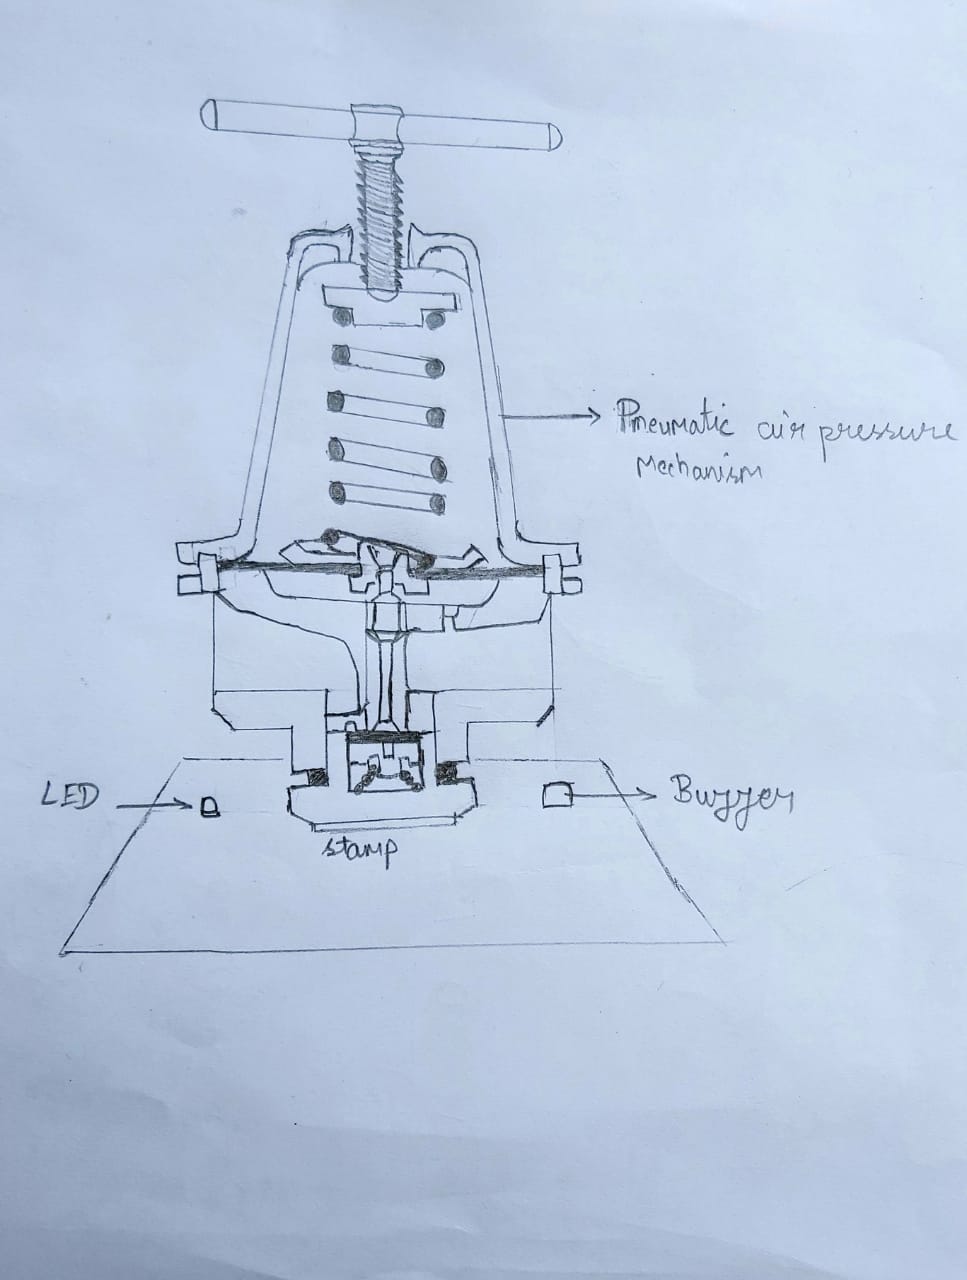 Pneumatic air pressure
Mechanism
LED
Buzzer
stamp